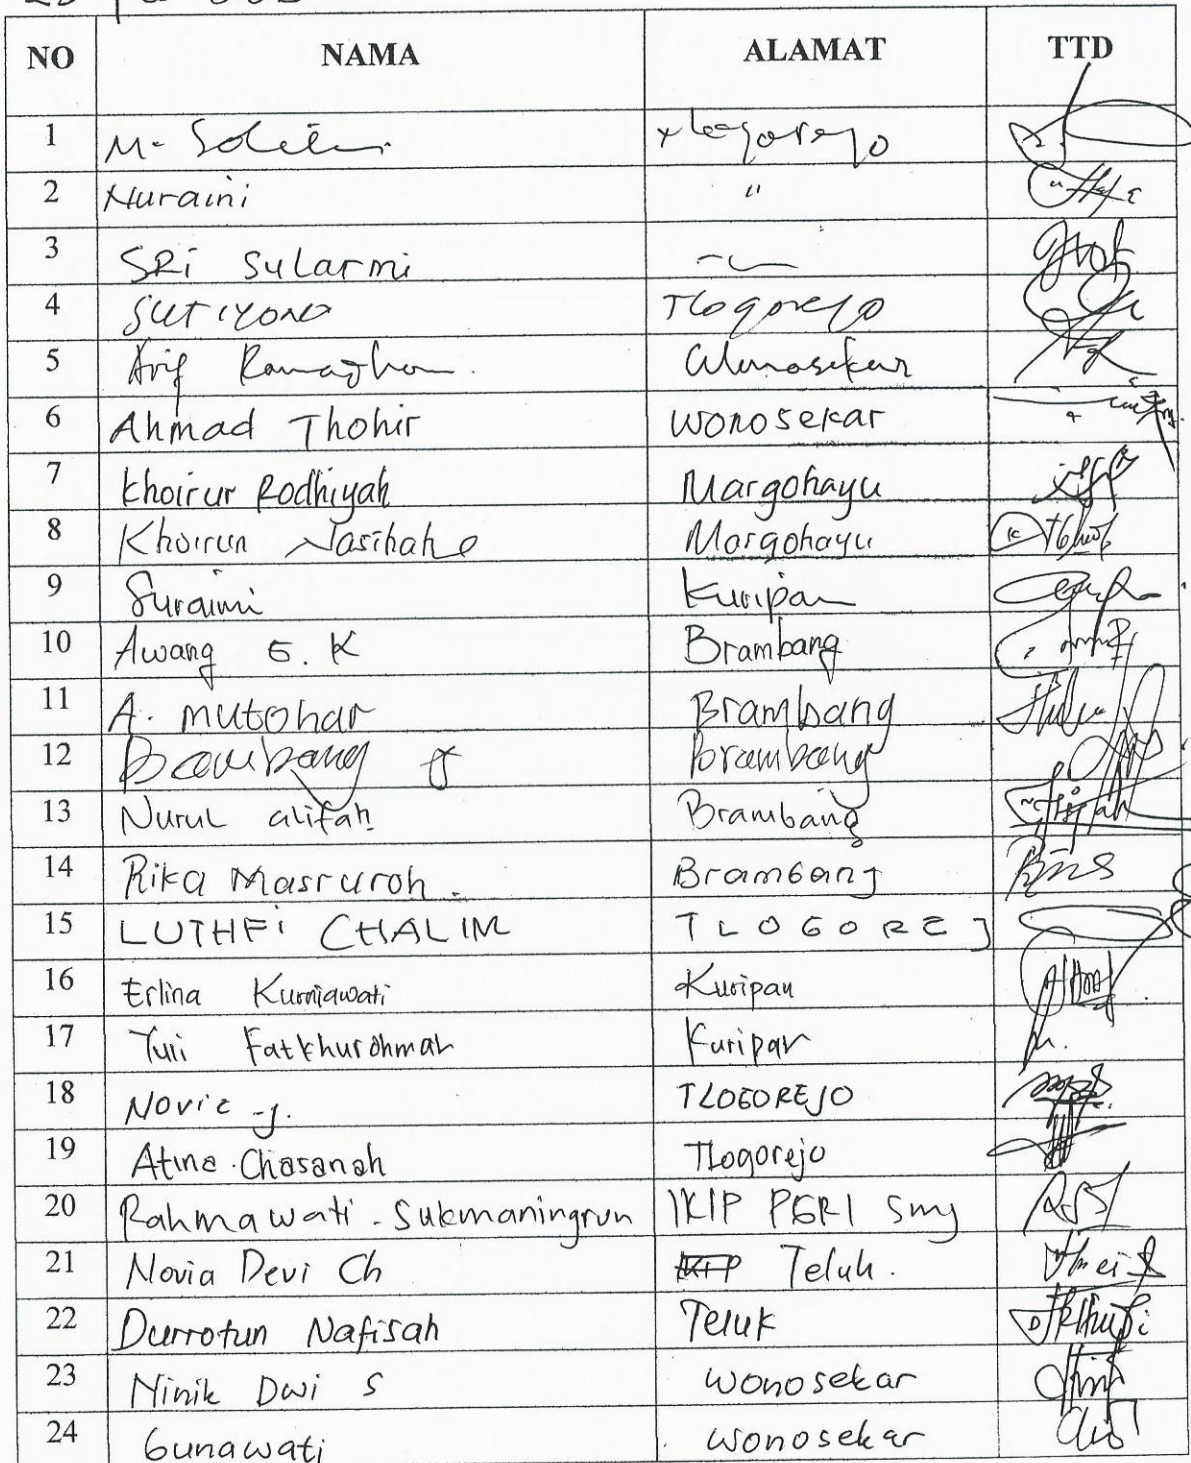 NO NAMA ALAMAT TTD
1 M. Tlogorejo
2 Nuraini "
3 SRi Sularmi
4 SUTIYONO Tlogorejo
5 Arif Ramadhan. Wonosekar
6 Ahmad Thohir Wonosekar
7 Khoirur Rodhiyah Margohayu
8 Khoirun Nasihah Margohayu
9 Suraimi Kuripan
10 Awang E. K Brambang
11 A. Mutohar Brambang
12 Bambang Brambang
13 Nurul alifah Brambang
14 Rika Masruroh. Brambang
15 LUTHFi CHALIM TLOGOREJ
16 Erlina Kurniawati Kuripan
17 Yuli Fatkhurohmah Kuripan
18 Novie TLOGOREJO
19 Atina Chasanah Tlogorejo
20 Rahmawati. Sukmaningrum IKIP PGRI Smg
21 Novia Devi Ch Teluk.
22 Durrotun Nafisah Teluk
23 Ninik Dwi S Wonosekar
24 Gunawati Wonosekar